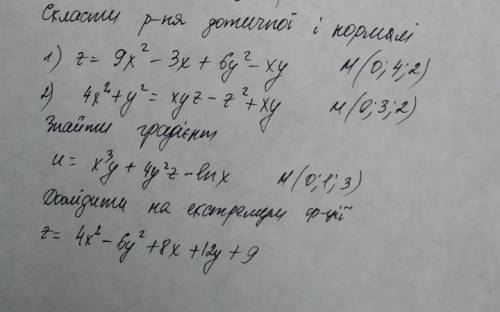 Скласти р-ня дотичної і нормалі
1) z = 9x² - 3x + 6y² - xy M(0; 4; 2)
2) 4x² + y² = xyz - z² + xy M(0; 3; 2)
Знайти градієнт
u = x³y + 4y²z - ln x M(0; 1; 3)
Дослідити на екстремум ф-ції
z = 4x² - 6y² + 8x + 12y + 9